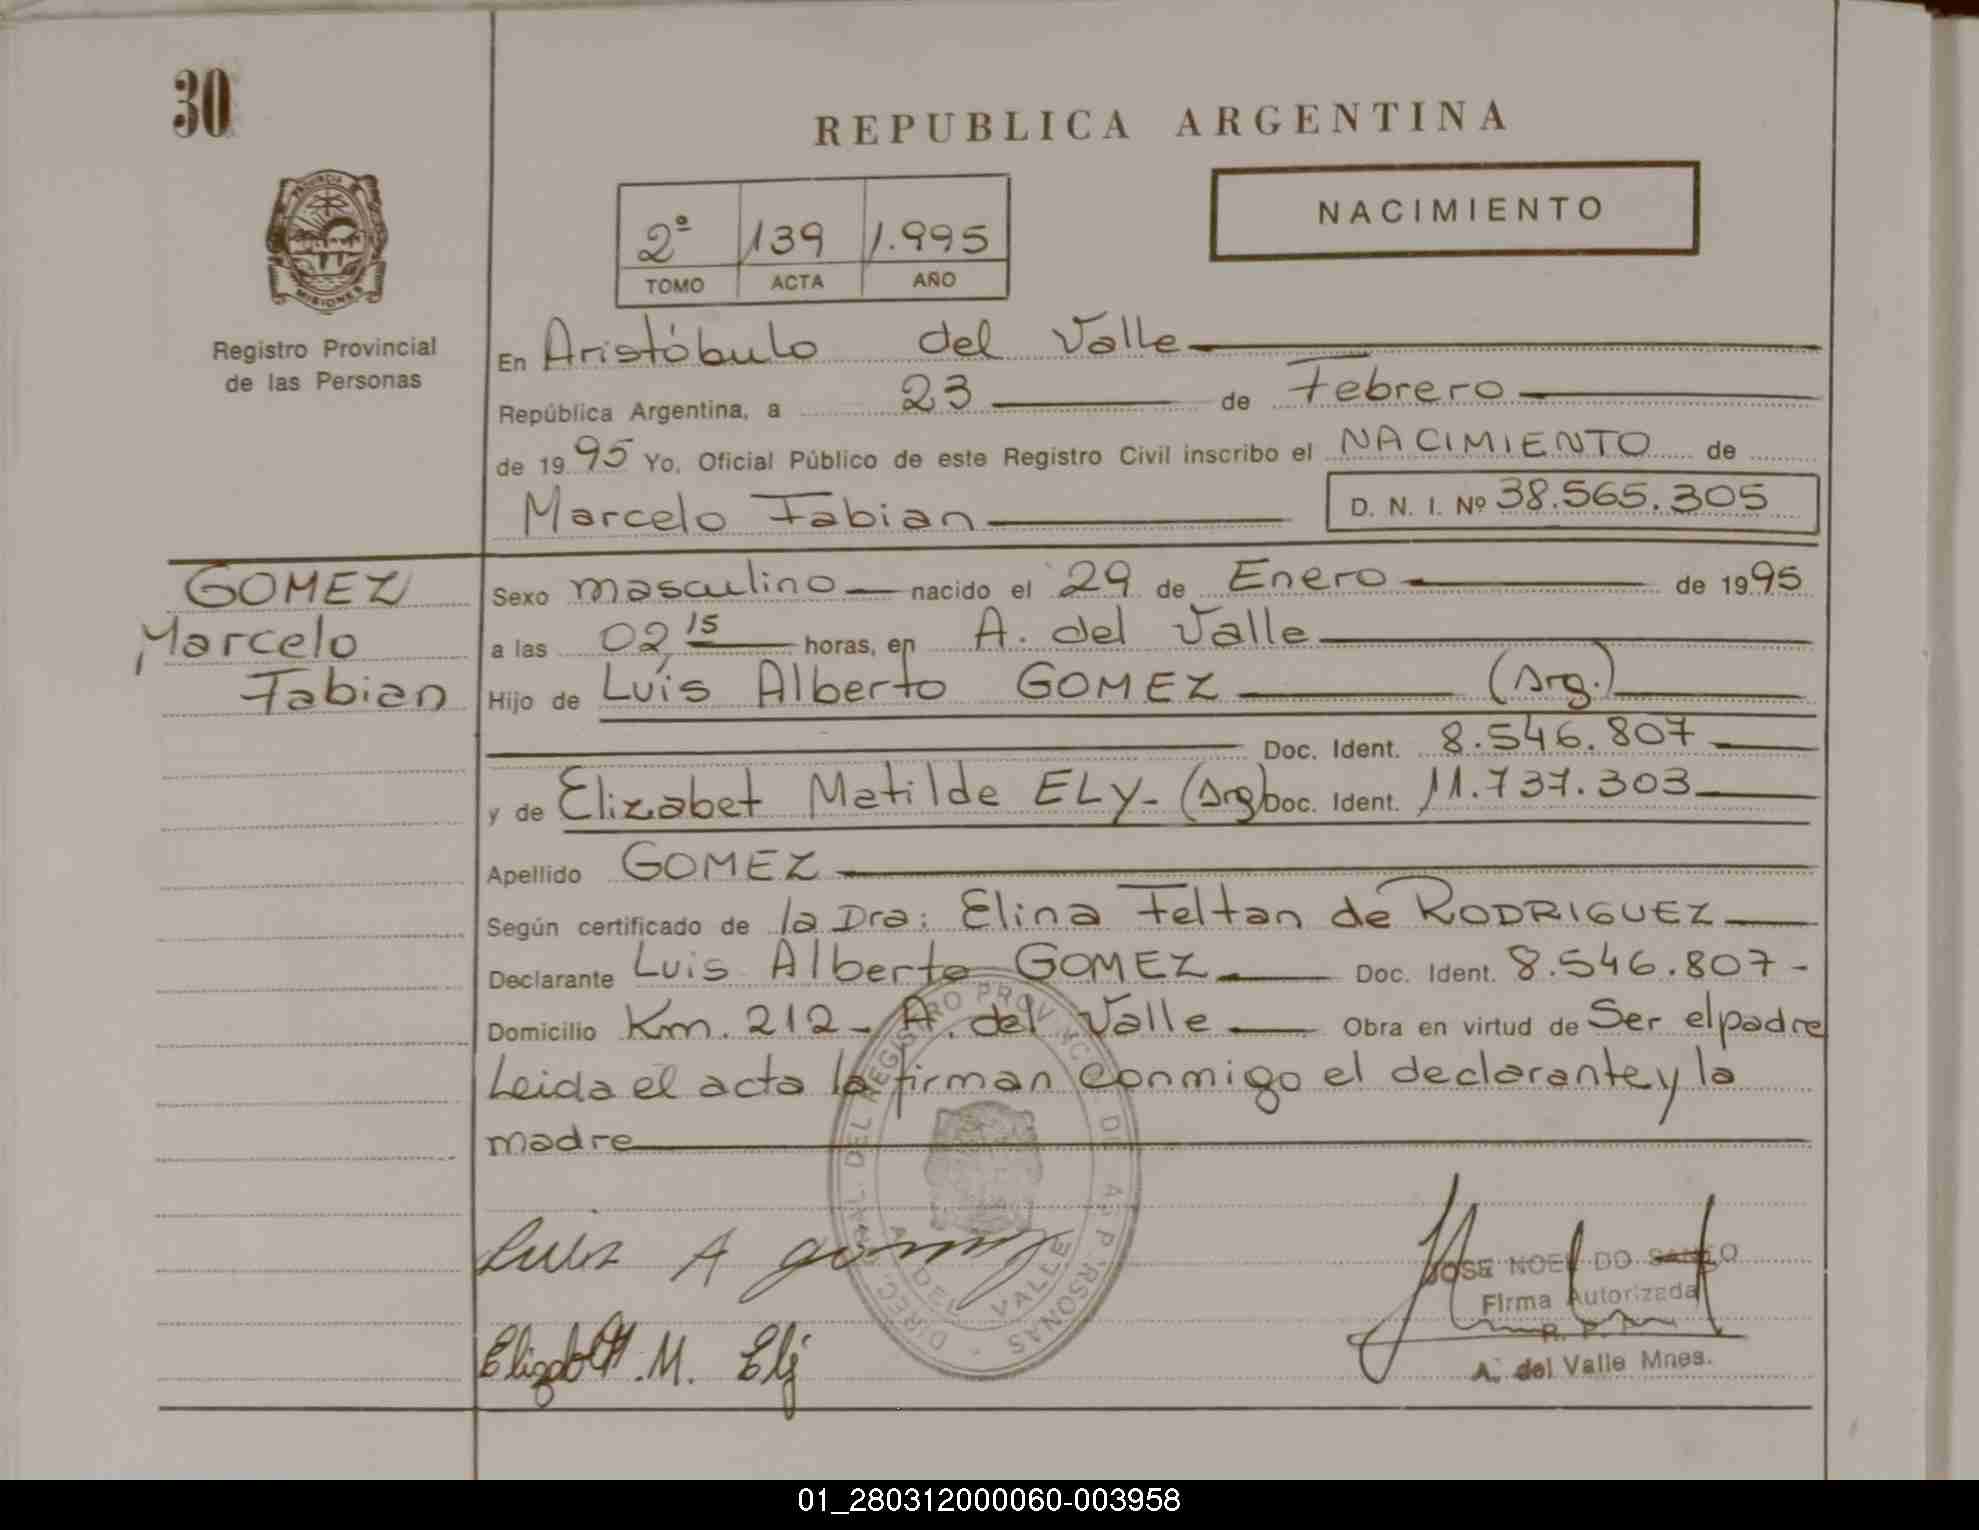 30
REPUBLICA ARGENTINA
NACIMIENTO
2º 139 1.995
TOMO ACTA AÑO
PROVINCIA
MISIONES
Registro Provincial
de las Personas
En Aristóbulo del Valle
República Argentina, a 23 de Febrero
de 1995 Yo, Oficial Público de este Registro Civil inscribo el NACIMIENTO de
Marcelo Fabian D. N. I. Nº 38.565.305
GOMEZ
Marcelo
Fabian
Sexo masculino nacido el 29 de Enero de 1995
a las 02,15 horas, en A. del Valle
Hijo de Luis Alberto GOMEZ (Arg.)
Doc. Ident. 8.546.807
y de Elizabet Matilde ELY- (Arg) Doc. Ident. 11.737.303
Apellido GOMEZ
Según certificado de la Dra: Elina Feltan de RODRIGUEZ
Declarante Luis Alberto GOMEZ Doc. Ident. 8.546.807-
Domicilio Km. 212- A. del Valle Obra en virtud de Ser el padre
Leida el acta la firman conmigo el declarante y la
madre
Luis A gomez
Elizabet. M. Ely
A. DEL VALLE
JOSE NOEL DO
Firma Autorizada
A. del Valle Mnes.
01_280312000060-003958